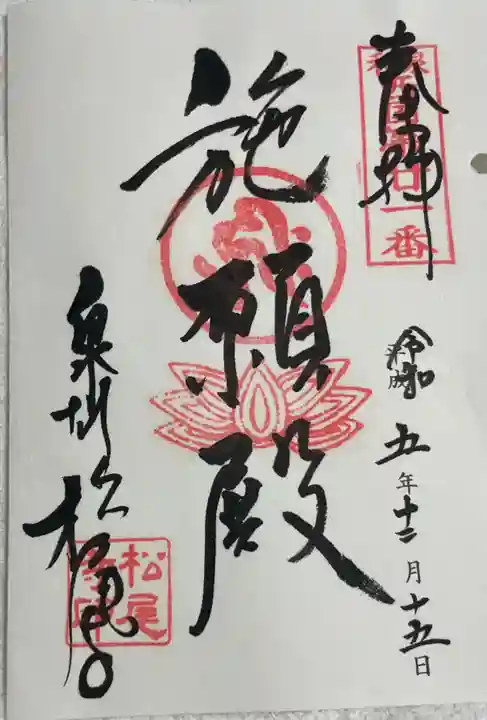 奉拝
令和五年十二月十五日
施願殿
泉州松尾寺
松尾寺印